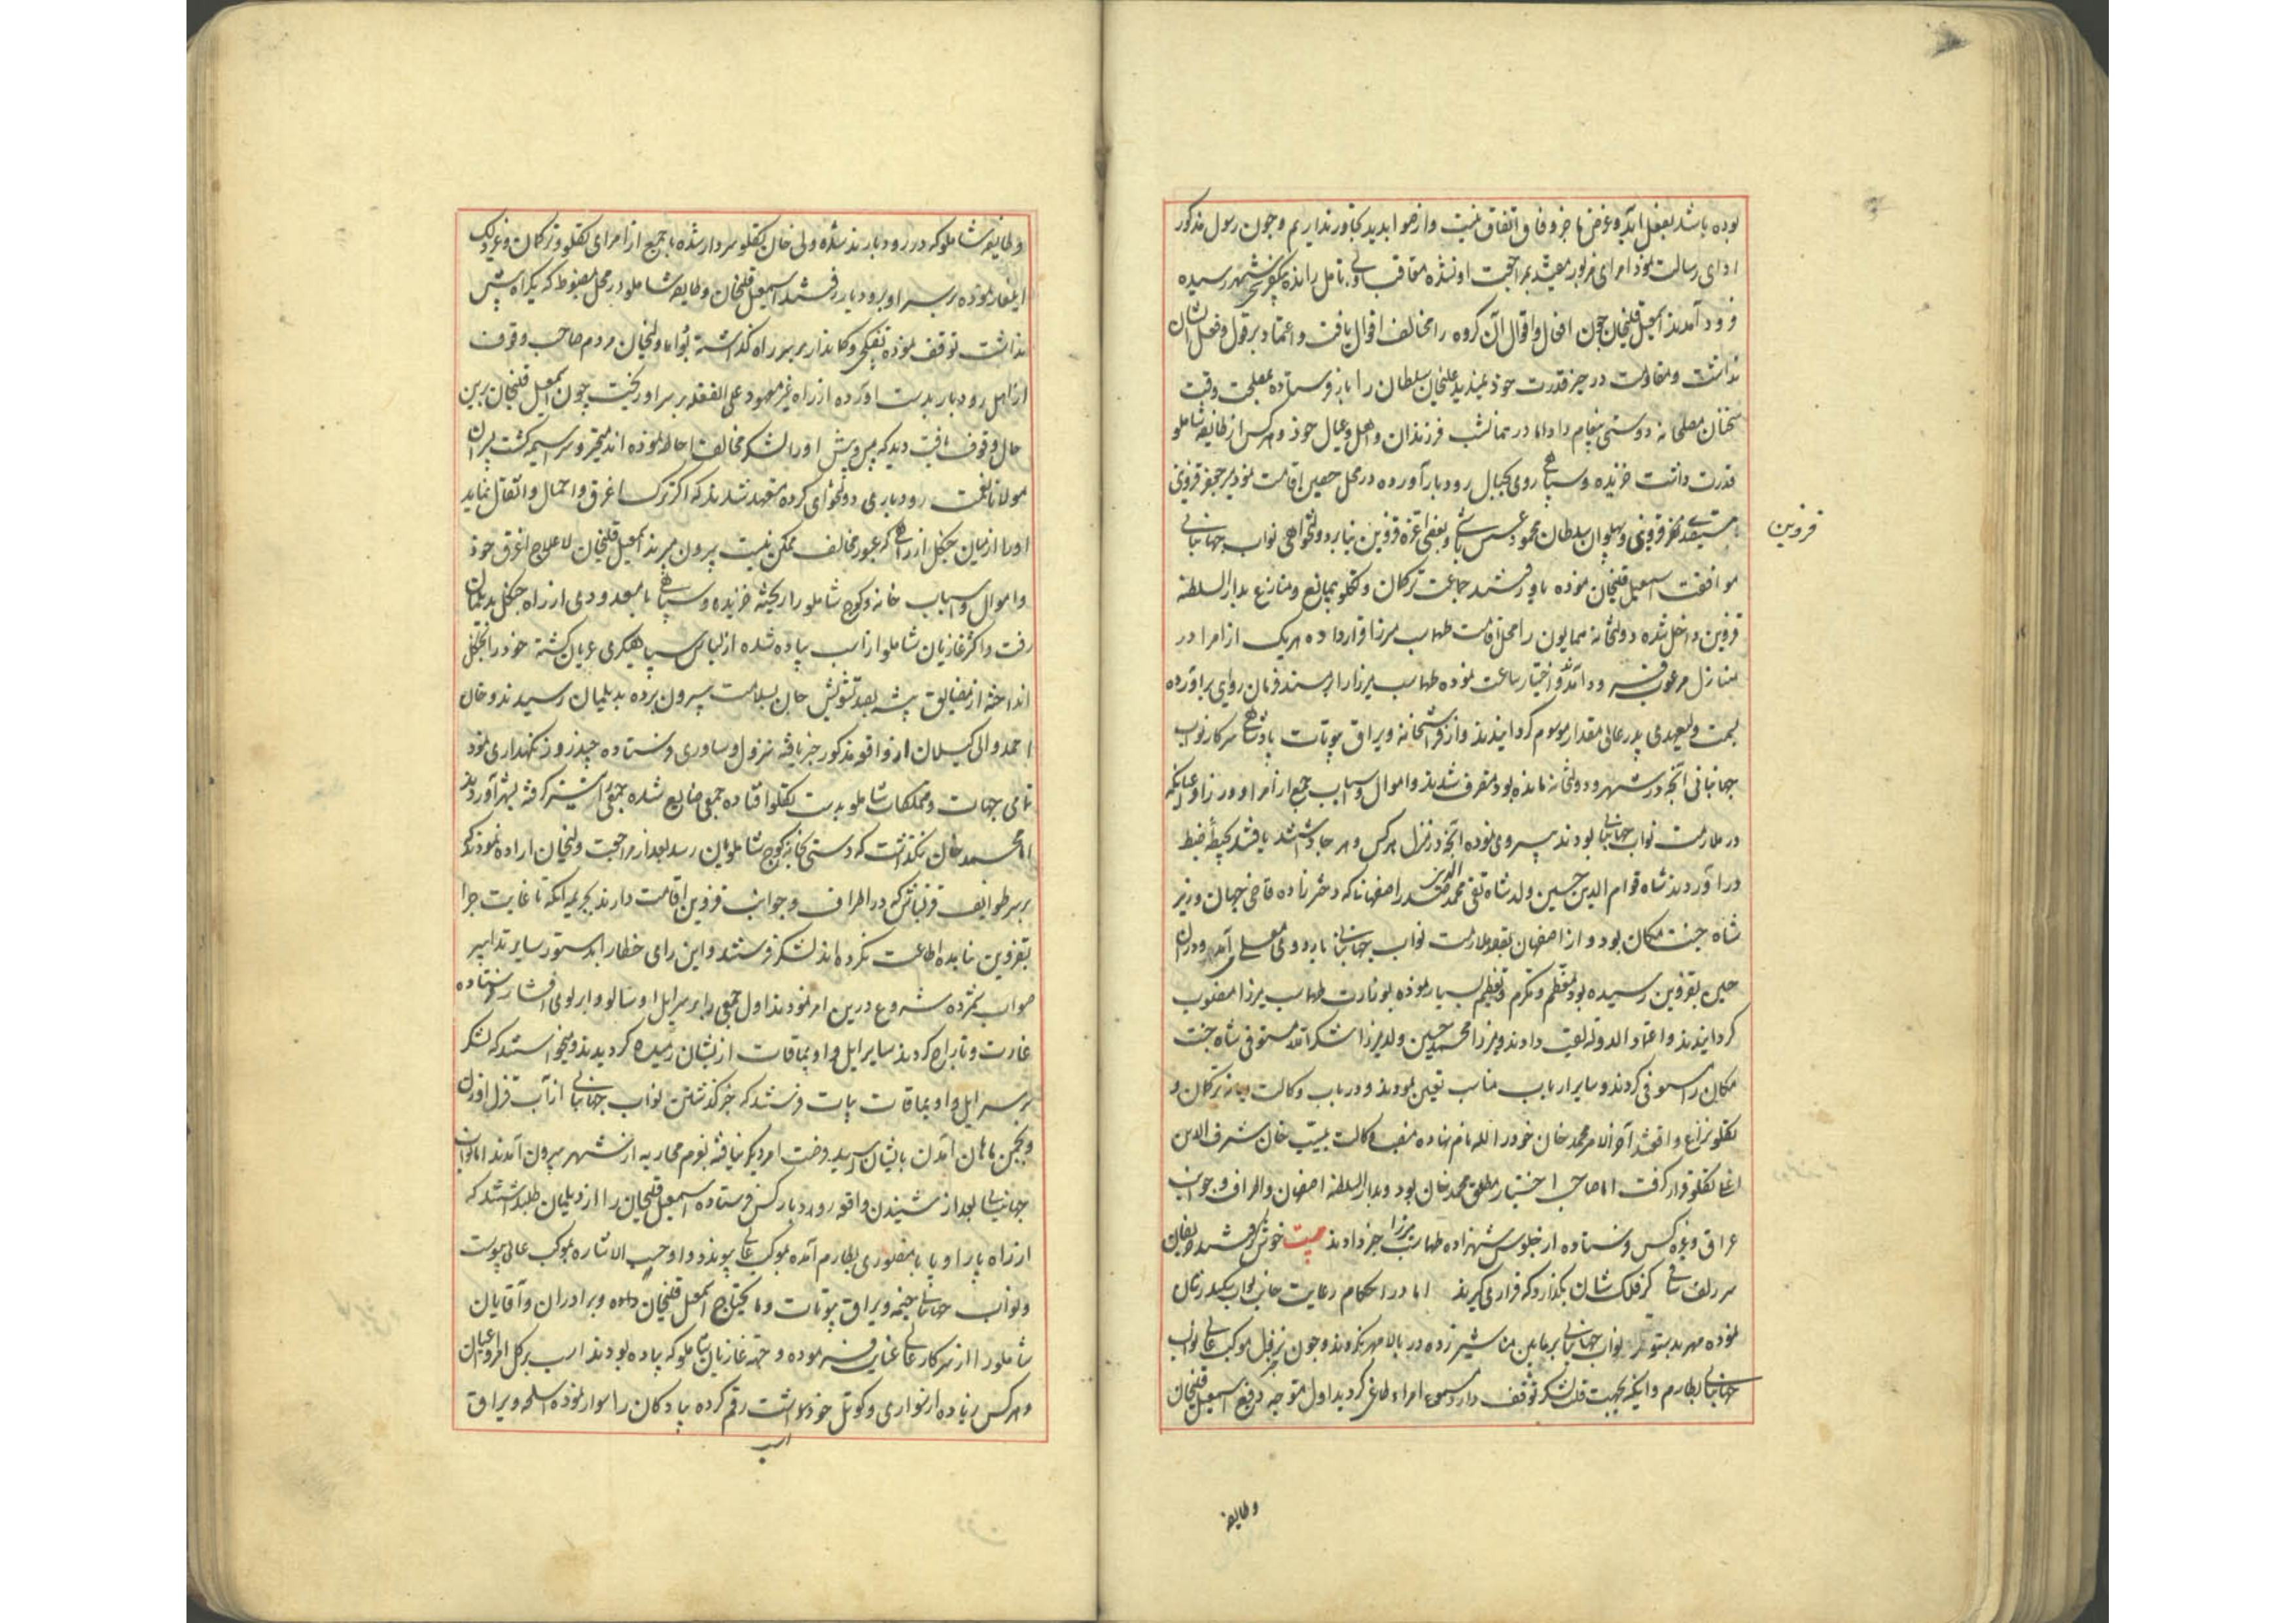 بوده باشد بفعل آید و غرض ما جز وفاق و اتفاق نیست و از صوابدید تجاوز نداریم و چون رسول مذکور
ادای رسالت نمود امرای مزبور مقید بمراجعت او نشده متعاقب بی تامل رانده شهر رسیده
فرود آمدند اسمعیل قلیخان چون افعال و اقوال آن گروه را مخالف اقوال یافت و اعتماد بر قول و فعل ایشان
نداشت و مقاومت در حیز قدرت خود ندید علیخان سلطان را باز فرستاده بمصلحت وقت
سخنان مصلحانه دوستی پیغام داد اما در تمام شب فرزندان و اهل و عیال خود و هرکس از طایفه شاملو
قدرت داشت خزیده و سپاهی روی بجبال رودبار آورده در محل حصین اقامت نمود میر جعفر قزوینی
قزوینی و پهلوان سلطان محمود عسس باشی و بعضی اعزه قزوین بنابر دولتخواهی نواب جهانبانی
قزوین
موافقت اسمعیل قلیخان نموده با او رفتند جماعت ترکمان و تکلو بی مانع و منازع بدار السلطنه
قزوین داخل شده دولتخانه همایون را محل اقامت طهماسب میرزا قرار داده هر یک از امرا در
منازل مرغوب فرود آمدند و اختیار ساعت نموده طهماسب میرزا را بر مسند فرمان روایی برآورده
بسمت ولیعهدی پدر عالی مقدار موسوم گردانیدند و از فراشخانه و یراق بیوتات پادشاهی سرکار نواب
جهانبانی آنچه در شهر و دولتخانه مانده بود متصرف شدند و اموال و اسباب جمعی از امرا و وزرا و اعیان که
در ملازمت نواب جهانبانی بودند پیروی نموده آنچه در منزل هرکس و هر جا داشتند یافتند بحیطه ضبط
درآوردند شاه قوام الدین حسین ولد شاه تقی الدین محمد صدر اصفهانی که دخترزاده قاضی جهان وزیر
شاه جنت مکان بود و از اصفهان بقصد ملازمت نواب جهانبانی باردوی معلی می آمد و در آن
حین بقزوین رسیده بود معظم و مکرم و تعظیم بسیار نموده بوزارت طهماسب میرزا منصوب
گردانیدند و اعتماد الدوله لقب دادند و میرزا محمد حسین ولد میرزا شکرالله مستوفی شاه جنت
مکان را مستوفی کردند و سایر ارباب مناصب تعیین نمودند و در باب وکالت میانه ترکمان و
تکلو نزاع واقع شد آخر الامر محمد خان خود را لله نام نهاده منصب وکالت بمسیب خان شرف الدین
اغلی تکلو قرار گرفت اما صاحب اختیار مطلق محمد خان بود و بدار السلطنه اصفهان و اطراف و جوانب
عراق و غیره کس فرستاده از جلوس شهزاده طهماسب میرزا خبر دادند بیت خوش گرفتند حریفان
سر زلف ساقی گر فلکشان بگذارد که قراری گیرند اما در احکام رعایت جانب نواب سکندر شان
نموده مهر بدستور نواب جهانبانی بر مابین مناشیر زده در بالا مهر نکردند و چون نزول موکب عالی نواب
جهانبانی بطارم و اینکه بجهت قلت لشکر توقف دارد مسموع امراء طاغی گردید اول متوجه دفع اسمعیل قلیخان
و طایفه
و طایفه شاملو که در رودبار بودند شده ولی خان تکلو سردار شده با جمعی از امرای تکلو و ترکمان و غیر ذلک
ایلغار نموده بر سر او برودبار رفتند اسمعیل قلیخان و طایفه شاملو در محل مضبوط که یک راه بیش
نداشت توقف نموده تفنگچی و کماندار بر سر راه گذاشته بود اما ولیخان مردم صاحب وقوف
از اهل رودبار بدست آورده از راه غیر معهود علی الغفله بر سر او ریخت چون اسمعیل قلیخان برین
حال وقوف یافت دید که پس و پیش او را لشکر مخالف احاطه نموده اند متحیر و سراسیمه گشت پسران
مولانا نعمت رودباری دولتخواهی کرده متعهد شدند که اگر ترک اغرق و احمال و اثقال نماید
او را از میان جنگل از راهی که عبور مخالف ممکن نیست بیرون برند اسمعیل قلیخان لاعلاج اغرق خود
و اموال و اسباب خانه و کوچ شاملو را ریخته خزیده و سپاهی با معدودی از راه جنگل بدیلمان
رفت و اکثر غازیان شاملو از اسب پیاده شده از لباس سپاهیگری عریان گشته خود را بجنگل
انداخته از مضایق بیشه بصد تشویش جان بسلامت بیرون برده بدیلمان رسیدند و خان
احمد والی گیلان از واقعه مذکور خبر یافته نزول و ساوری فرستاده چند روز نگهداری نمود
تمامی جهات و مملکات شاملو بدست تکلو افتاده جمعی ضایع شده جمعی اسیر گرفته بشهر آوردند
اما محمد خان نگذاشت که دستی بخانه کوچ شاملویان رسد بعد از مراجعت ولیخان اراده نمودند که
بر سر طوایف قزلباش که در اطراف و جوانب قزوین اقامت دارند بجریمه آنکه تا غایت چرا
بقزوین نیامده اطاعت نکرده اند لشکر فرستند و این رای خطا را بدستور سایر تدابیر
صواب شمرده شروع درین امر نمودند اول جمعی را بر سر ایل اوسالو و ایرلوی افشار فرستاده
غارت و تاراج کردند سایر ایل و اویماقات ازیشان رمیده گردیدند و میخواستند که لشکر
بر سر ایل و اویماقات بیات فرستند که خبر گذشتن نواب جهانبانی از آب قزل اوزن
و بجمن ماهان آمدن بایشان رسید فرصت امر دیگر نیافته بعزم محاربه از شهر بیرون آمدند اما نواب
جهانبانی بعد از شنیدن واقعه رودبار کس فرستاده اسمعیل قلیخان را از دیلمان طلب داشتند که
از راه بطارم آمده بموکب عالی پیوندد و او حسب الاشاره بموکب عالی پیوست
و نواب جهانبانی خیمه و یراق بیوتات و مایحتاج اسمعیل قلیخان داده و برادران و آقایان
شاملو را از سرکار عالی عنایت فرموده و جهة غازیان شاملو که پیاده بودند اسب بر کل امرا و اعیان
و هرکس زیاده از سواری و کوتل خود داشت رقم کرده پیادگان را سوار نموده اسلحه و یراق
اسب